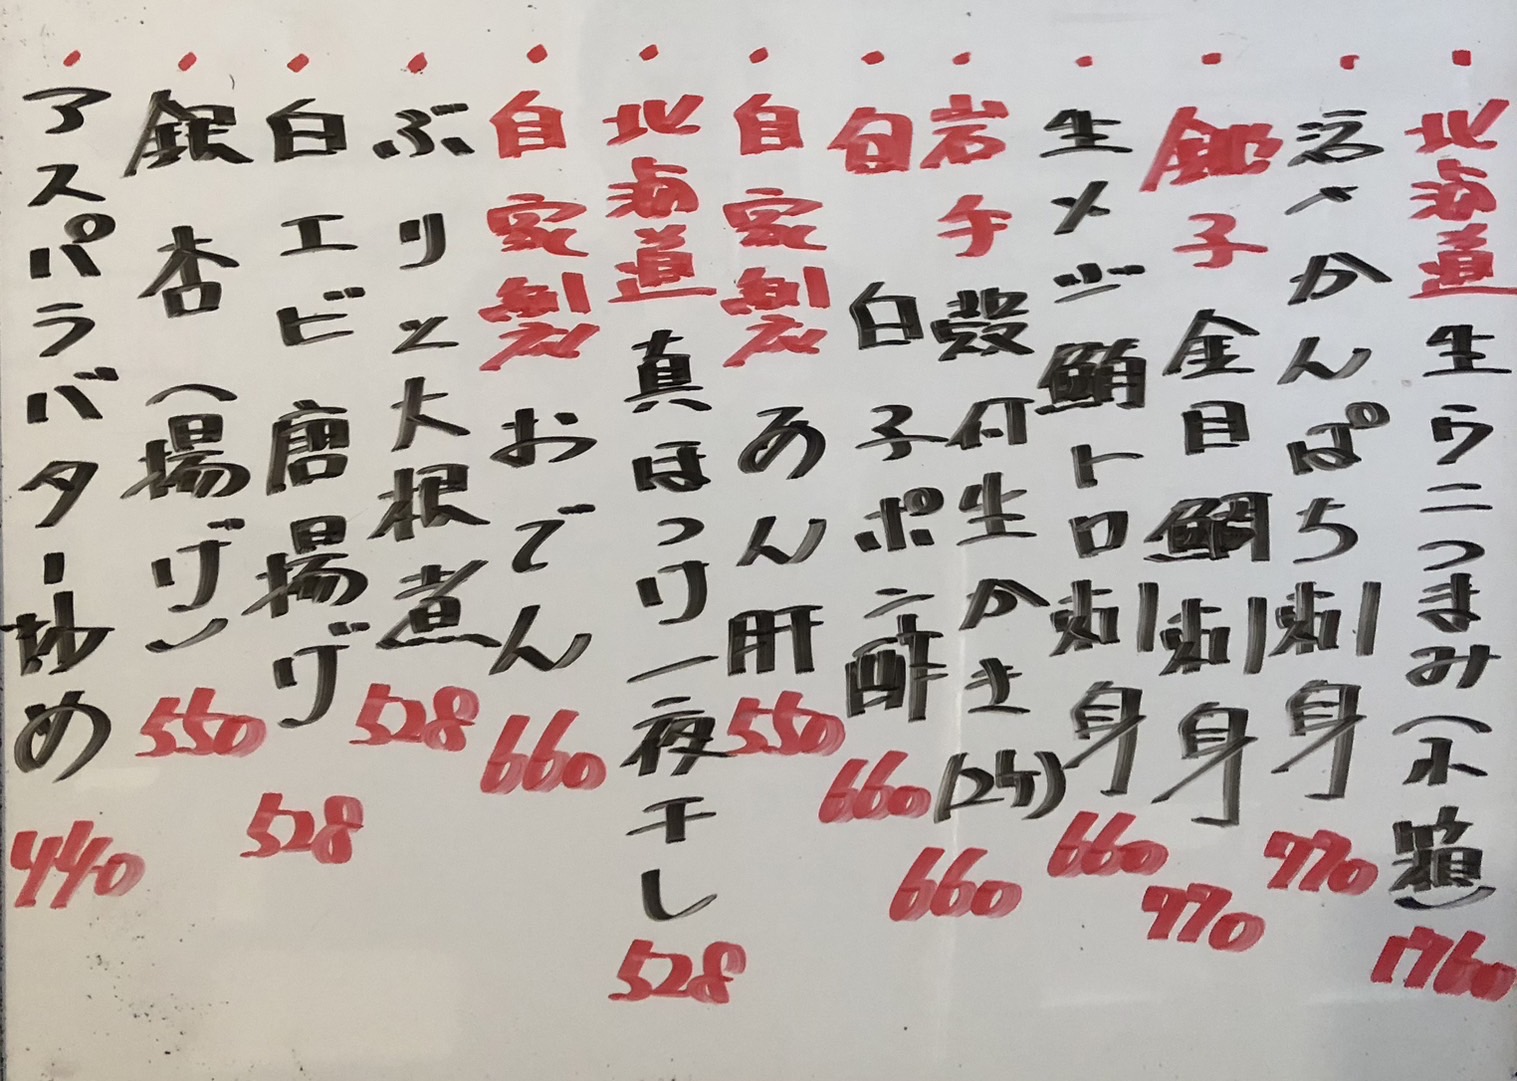 ・北海道生ウニつまみ(小箱)1760
・活〆かんぱち刺身770
・銚子金目鯛刺身770
・生メジ鮪トロ刺身660
・岩手殻付生かき(2ケ)660
・旬白子ポン酢660
・自家製あん肝550
・北海道真ほっけ一夜干し528
・自家製おでん660
・ぶりと大根煮528
・白エビ唐揚げ528
・銀杏(揚げ)550
・アスパラバター炒め440